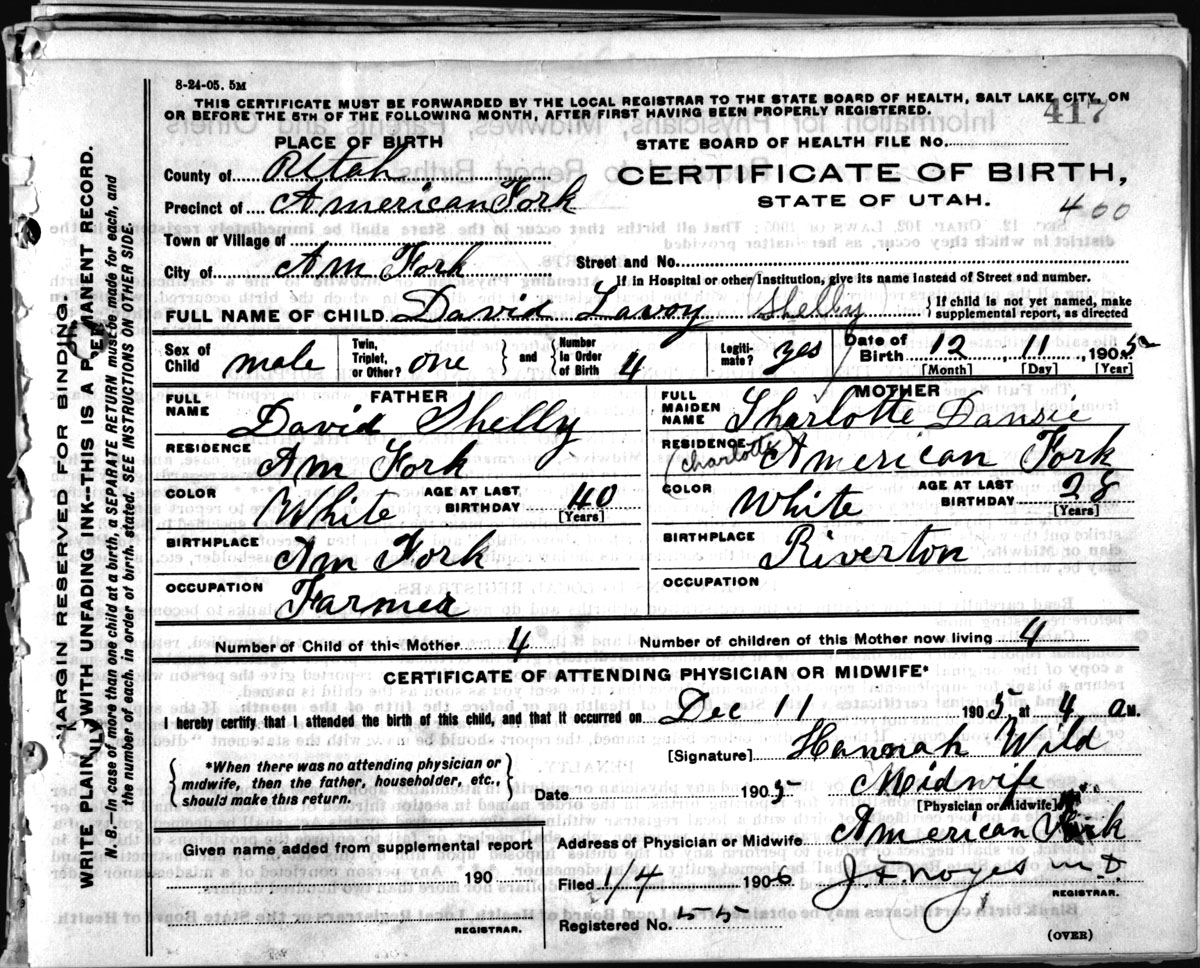 8-24-05. 5M
THIS CERTIFICATE MUST BE FORWARDED BY THE LOCAL REGISTRAR TO THE STATE BOARD OF HEALTH, SALT LAKE CITY, ON
OR BEFORE THE 5TH OF THE FOLLOWING MONTH, AFTER FIRST HAVING BEEN PROPERLY REGISTERED.
417
PLACE OF BIRTH
STATE BOARD OF HEALTH FILE No.
County of Utah
CERTIFICATE OF BIRTH,
Precinct of American Fork
STATE OF UTAH.
400
Town or Village of
City of Am Fork
Street and No.
If in Hospital or other Institution, give its name instead of Street and number.
FULL NAME OF CHILD David Lavoy Shelly
If child is not yet named, make
supplemental report, as directed
Sex of Child male Twin, Triplet, or Other? one and Number in Order of Birth 4 Legiti-mate? yes Date of Birth 12, 11, 1905
[Month] [Day] [Year]
FATHER
MOTHER
FULL NAME David Shelly
FULL MAIDEN NAME Sharlotte Dansie
(Charlotte)
RESIDENCE Am Fork
RESIDENCE American Fork
COLOR White AGE AT LAST BIRTHDAY 40 [Years]
COLOR White AGE AT LAST BIRTHDAY 28 [Years]
BIRTHPLACE Am Fork
BIRTHPLACE Riverton
OCCUPATION Farmer
OCCUPATION
Number of Child of this Mother 4 Number of children of this Mother now living 4
CERTIFICATE OF ATTENDING PHYSICIAN OR MIDWIFE*
I hereby certify that I attended the birth of this child, and that it occurred on Dec 11 1905, at 4 a M.
[Signature] Hannah Wild
*When there was no attending physician or
midwife, then the father, householder, etc.,
should make this return.
Date 1905 Midwife
[Physician or Midwife]
Given name added from supplemental report
190
REGISTRAR.
Address of Physician or Midwife American Fork
Filed 1/4 1906 J.F. Noyes M.D
REGISTRAR.
Registered No. 55
(OVER)
MARGIN RESERVED FOR BINDING.
WRITE PLAINLY WITH UNFADING INK--THIS IS A PERMANENT RECORD.
N. B.—In case of more than one child at a birth, a SEPARATE RETURN must be made for each, and
the number of each, in order of birth, stated. SEE INSTRUCTIONS ON OTHER SIDE.